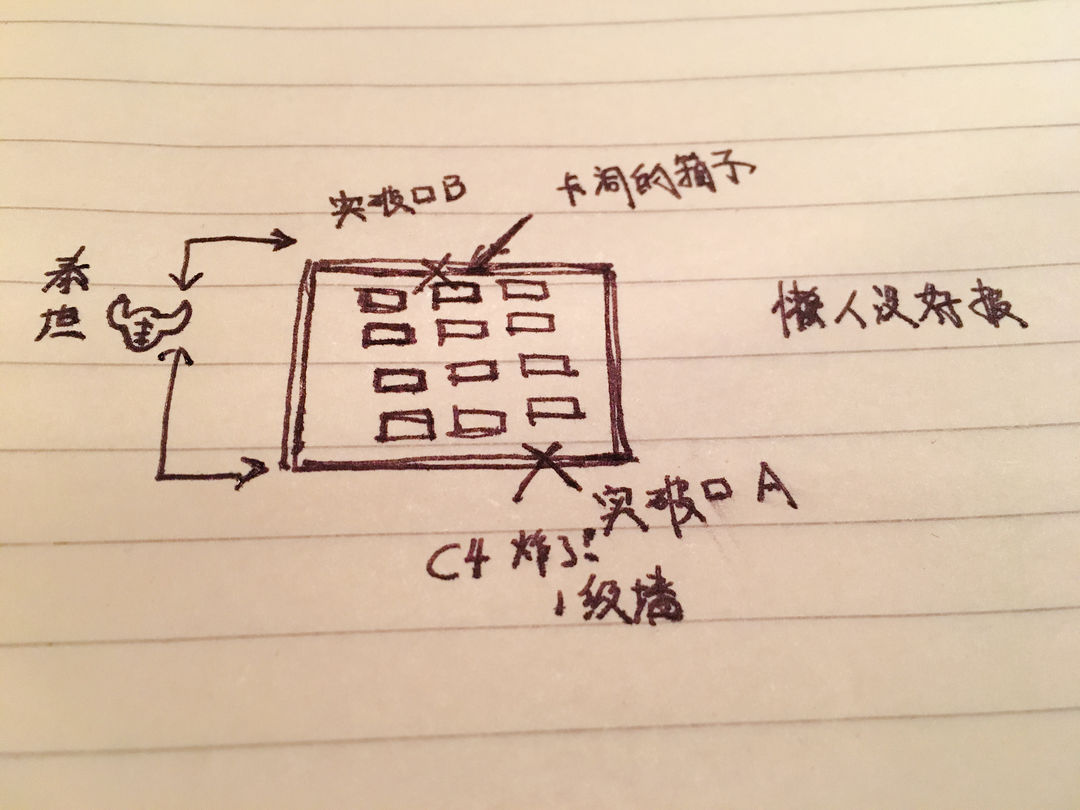 突破口B
卡洞的箱子
泰坦
懒人没好报
突破口 A
C4 炸了!
1级墙